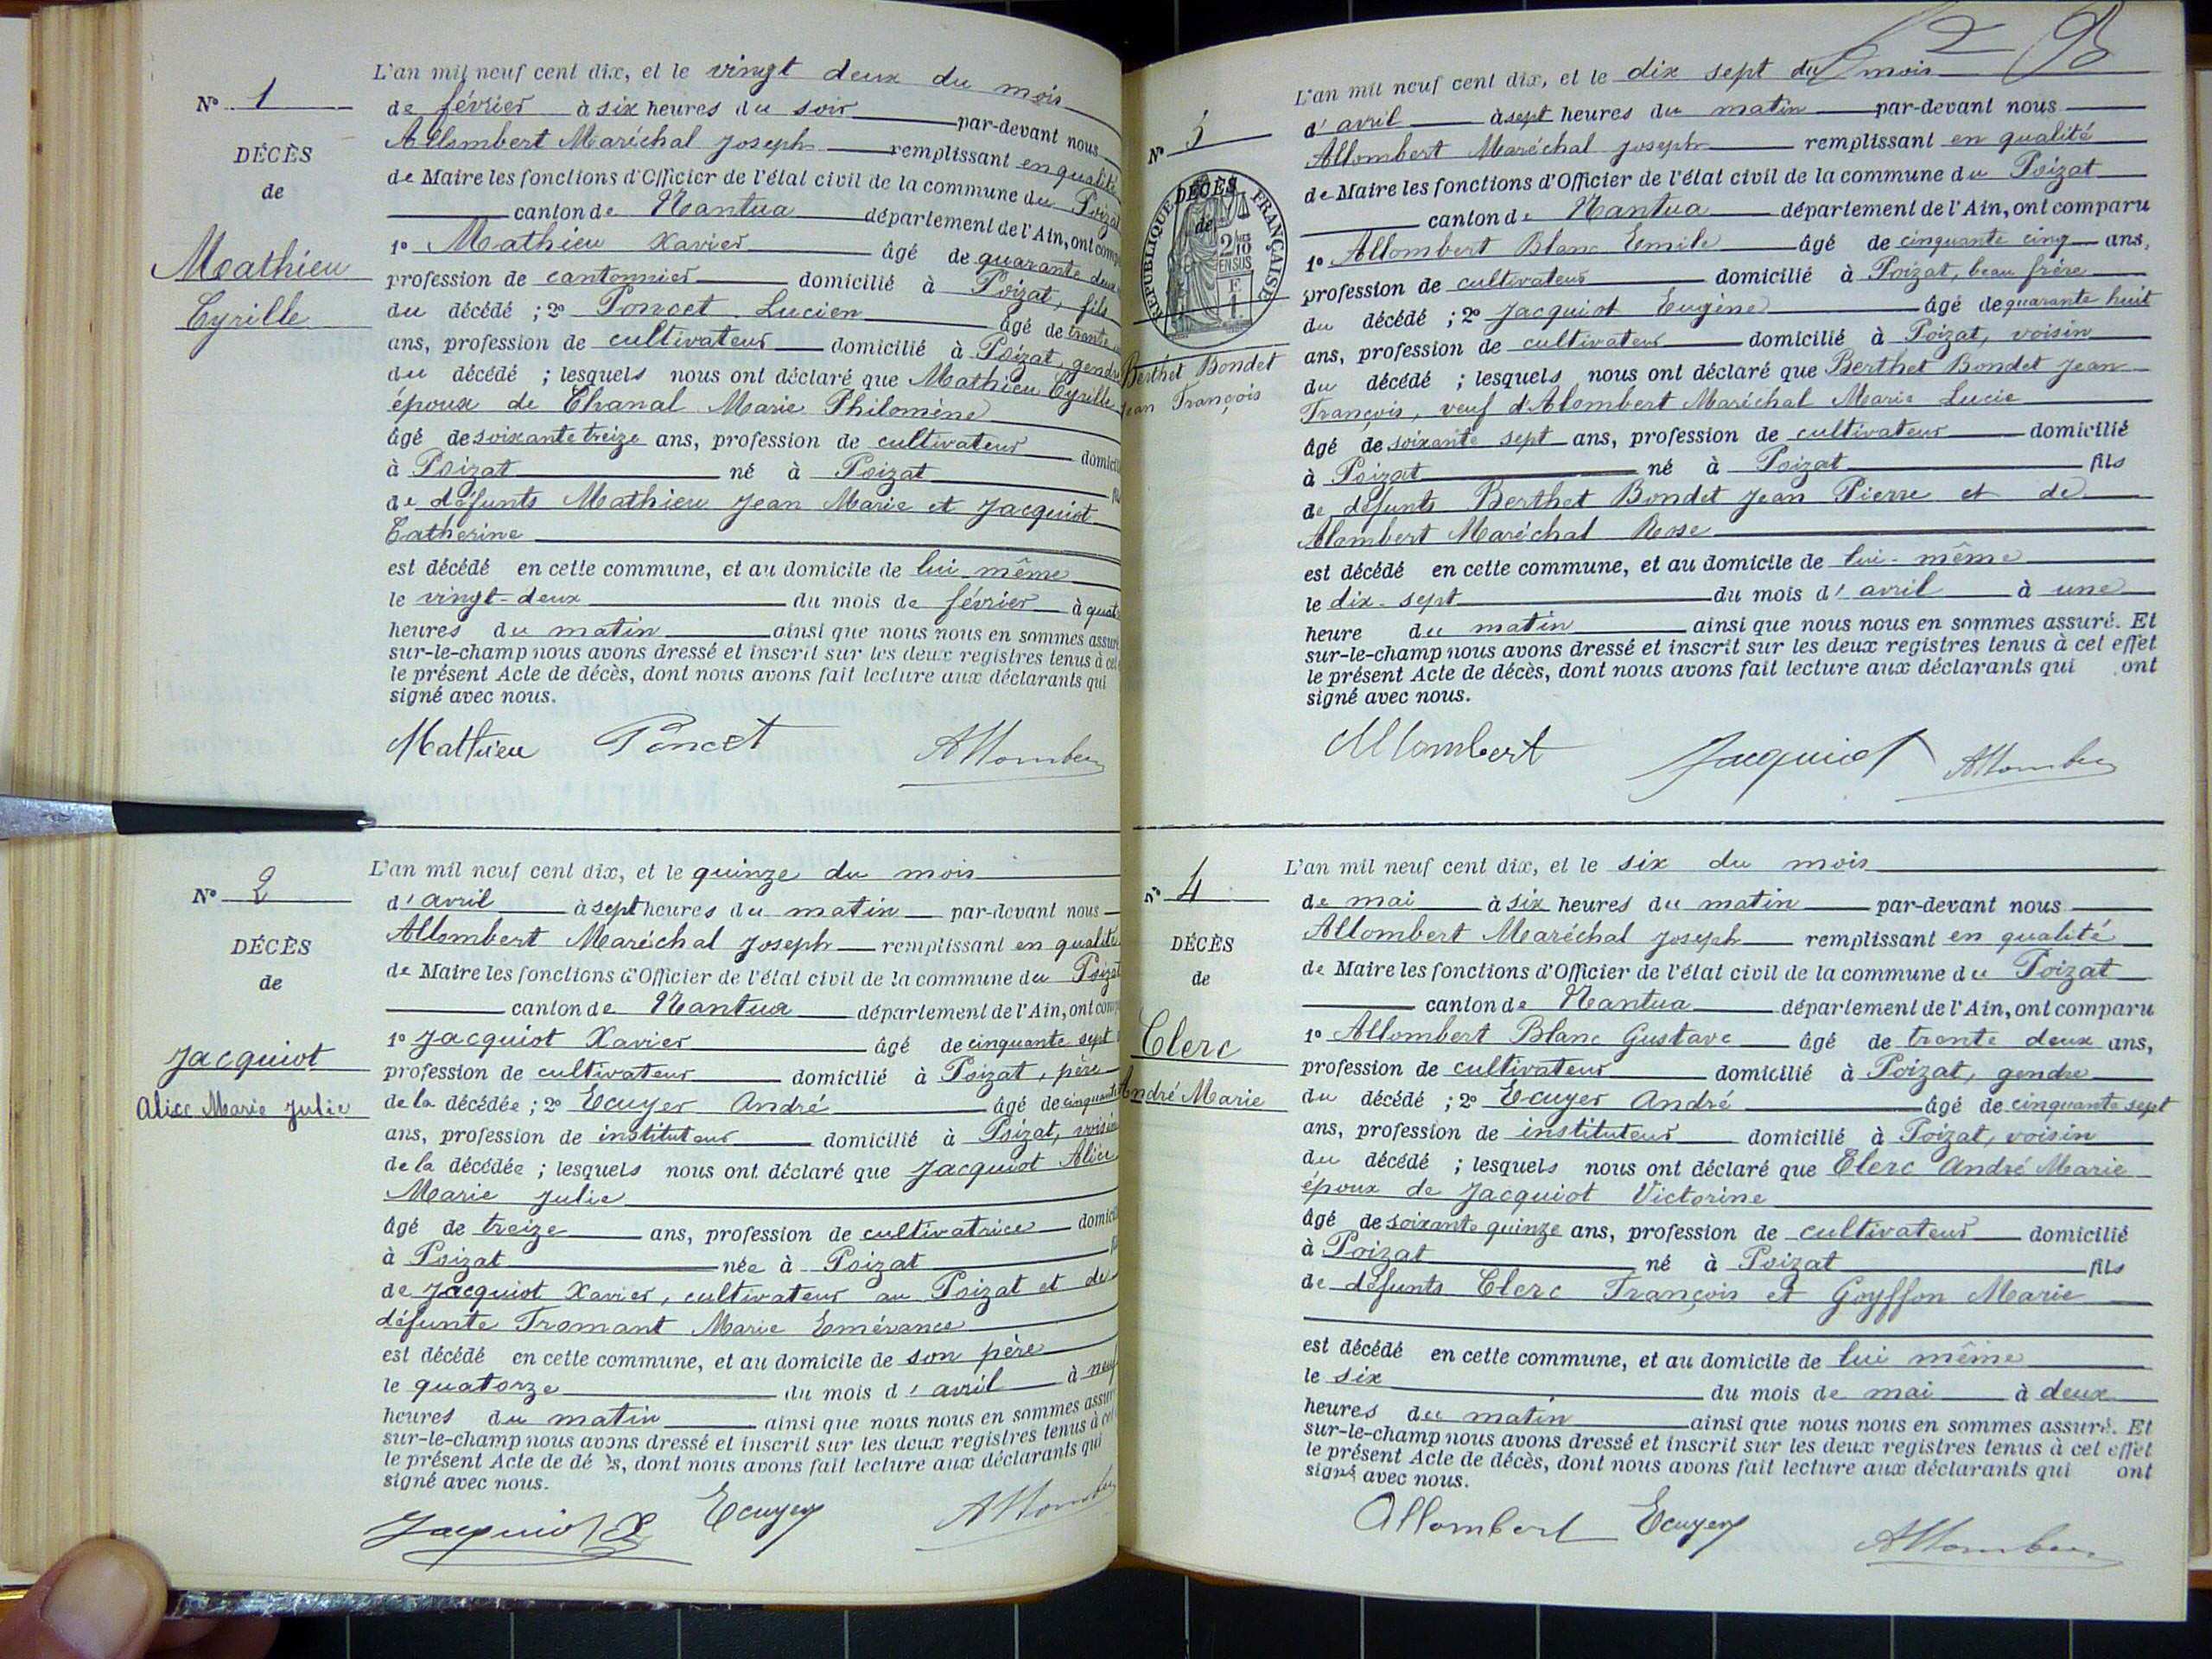 N° 1
DÉCÈS
de
Mathieu
Cyrille
L'an mil neuf cent dix, et le vingt deux du mois
de février à six heures du soir par-devant nous
Allombert Maréchal Joseph remplissant en qualité
de Maire les fonctions d'Officier de l'état civil de la commune du Poizat
canton de Nantua département de l'Ain, ont comp
1° Mathieu Xavier âgé de quarante deux
profession de cantonnier domicilié à Poizat, fils
du décédé ; 2° Poncet Lucien âgé de trente
ans, profession de cultivateur domicilié à Poizat, gendre
du décédé ; lesquels nous ont déclaré que Mathieu Cyrille
époux de Chanal Marie Philomène
âgé de soixante treize ans, profession de cultivateur domicil
à Poizat né à Poizat
de défunts Mathieu Jean Marie et Jacquiot
Catherine
est décédé en cette commune, et au domicile de lui même
le vingt-deux du mois de février à quat
heures du matin ainsi que nous nous en sommes assuré
sur-le-champ nous avons dressé et inscrit sur les deux registres tenus à cet
le présent Acte de décès, dont nous avons fait lecture aux déclarants qui
signé avec nous.
Mathieu Poncet Allomber
N° 2
DÉCÈS
de
Jacquiot
Alice Marie Julie
L'an mil neuf cent dix, et le quinze du mois
d'avril à sept heures du matin par-devant nous
Allombert Maréchal Joseph remplissant en qualité
de Maire les fonctions d'Officier de l'état civil de la commune du Poizat
canton de Nantua département de l'Ain, ont comp
1° Jacquiot Xavier âgé de cinquante sept
profession de cultivateur domicilié à Poizat, père
de la décédée ; 2° Ecuyer André âgé de cinquante
ans, profession de instituteur domicilié à Poizat, voisin
de la décédée ; lesquels nous ont déclaré que Jacquiot Alice
Marie Julie
âgé de treize ans, profession de cultivatrice domicil
à Poizat née à Poizat
de Jacquiot Xavier, cultivateur au Poizat et de
défunte Tromant Marie Émérance
est décédé en cette commune, et au domicile de son père
le quatorze du mois d'avril à neuf
heures du matin ainsi que nous nous en sommes assur
sur-le-champ nous avons dressé et inscrit sur les deux registres tenus à cet
le présent Acte de dé s, dont nous avons fait lecture aux déclarants qui
signé avec nous.
Jacquiot X Ecuyer Allomber
2
N° 3
DÉCÈS
de
RÉPUBLIQUE FRANÇAISE
2/10 EN SUS
Berthet Bondet
Jean François
L'an mil neuf cent dix, et le dix sept du mois
d'avril à sept heures du matin par-devant nous
Allombert Maréchal Joseph remplissant en qualité
de Maire les fonctions d'Officier de l'état civil de la commune du Poizat
canton de Nantua département de l'Ain, ont comparu
1° Allombert Blanc Emile âgé de cinquante cinq ans,
profession de cultivateur domicilié à Poizat, beau frère
du décédé ; 2° Jacquiot Eugène âgé de quarante huit
ans, profession de cultivateur domicilié à Poizat, voisin
du décédé ; lesquels nous ont déclaré que Berthet Bondet Jean
François, veuf d'Alombert Maréchal Marie Lucie
âgé de soixante sept ans, profession de cultivateur domicilié
à Poizat né à Poizat fils
de défunts Berthet Bondet Jean Pierre et de
Alombert Maréchal Rose
est décédé en cette commune, et au domicile de lui-même
le dix-sept du mois d'avril à une
heure du matin ainsi que nous nous en sommes assuré. Et
sur-le-champ nous avons dressé et inscrit sur les deux registres tenus à cet effet
le présent Acte de décès, dont nous avons fait lecture aux déclarants qui ont
signé avec nous.
Allombert Jacquiot Allomber
N° 4
DÉCÈS
de
Clerc
André Marie
L'an mil neuf cent dix, et le six du mois
de mai à six heures du matin par-devant nous
Allombert Maréchal Joseph remplissant en qualité
de Maire les fonctions d'Officier de l'état civil de la commune du Poizat
canton de Nantua département de l'Ain, ont comparu
1° Allombert Blanc Gustave âgé de trente deux ans,
profession de cultivateur domicilié à Poizat, gendre
du décédé ; 2° Ecuyer André âgé de cinquante sept
ans, profession de instituteur domicilié à Poizat, voisin
du décédé ; lesquels nous ont déclaré que Clerc André Marie
époux de Jacquiot Victorine
âgé de soixante quinze ans, profession de cultivateur domicilié
à Poizat né à Poizat fils
de défunts Clerc François et Goyffon Marie
est décédé en cette commune, et au domicile de lui même
le six du mois de mai à deux
heures du matin ainsi que nous nous en sommes assuré. Et
sur-le-champ nous avons dressé et inscrit sur les deux registres tenus à cet effet
le présent Acte de décès, dont nous avons fait lecture aux déclarants qui ont
signé avec nous.
Allombert Ecuyer Allomber